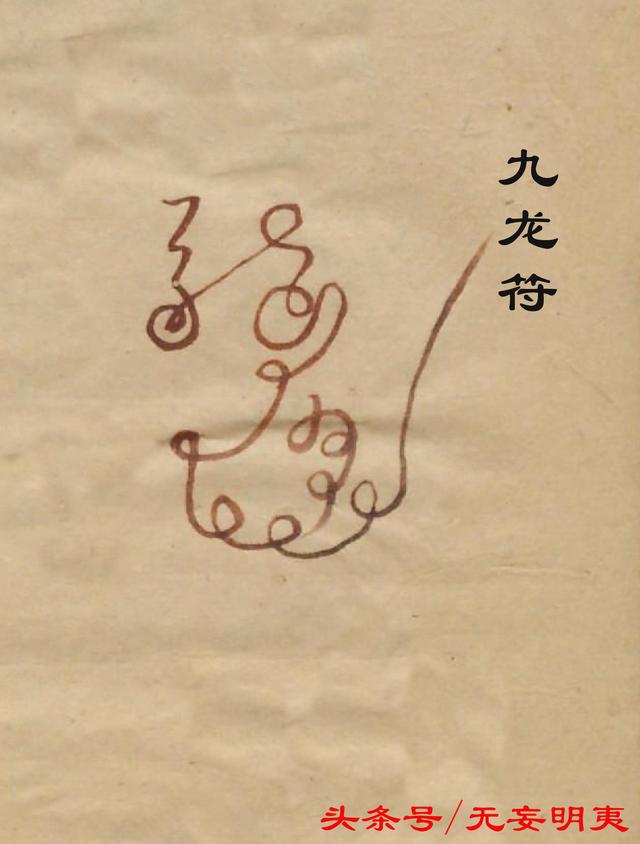 九龙符
头条号/无妄明夷